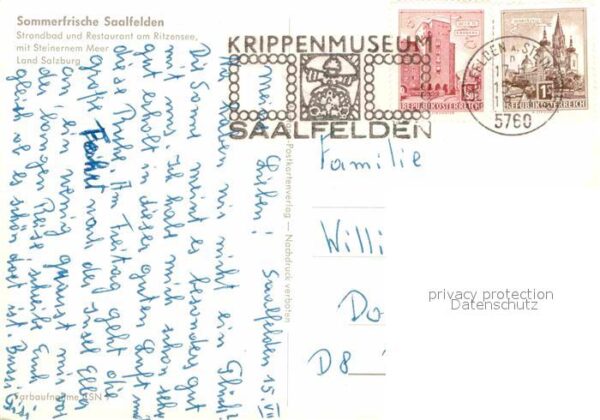 Sommerfrische Saalfelden
Strandbad und Restaurant am Ritzensee,
mit Steinernem Meer
Land Salzburg
KRIPPENMUSEUM
SAALFELDEN
REPUBLIK ÖSTERREICH
REPUBLIK ÖSTERREICH
5760
Postkartenverlag — Nachdruck verboten
Familie
Willi
Do
D8
privacy protection
Datenschutz
Saalfelden 15.
Meine Lieben!
haben wir nicht ein Glück
Die Sonne meint es besonders gut
mit uns. ich habe mich schon sehr
gut erholt in dieser guten Luft und
diese Ruhe. Am Freitag geht die
große Fahrt nach der Insel Elba
an ein wenig graust mir vor
der langen Reise schreibe Euch
gleich ob es schön dort ist.
Farbaufnahme